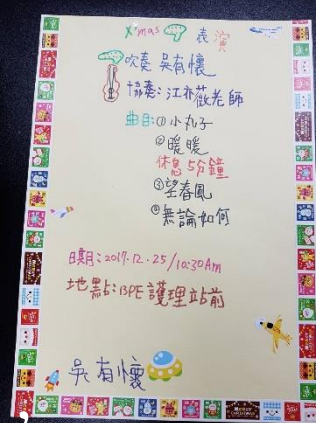 X'mas 表演
吹奏 吳有懷
協奏：江亦葳老師
曲目：① 小丸子
② 暖暖
休息 5分鐘
③ 望春風
④ 無論如何
日期：2017.12.25/10:30Am
地點：13PE護理站前
吳有懷